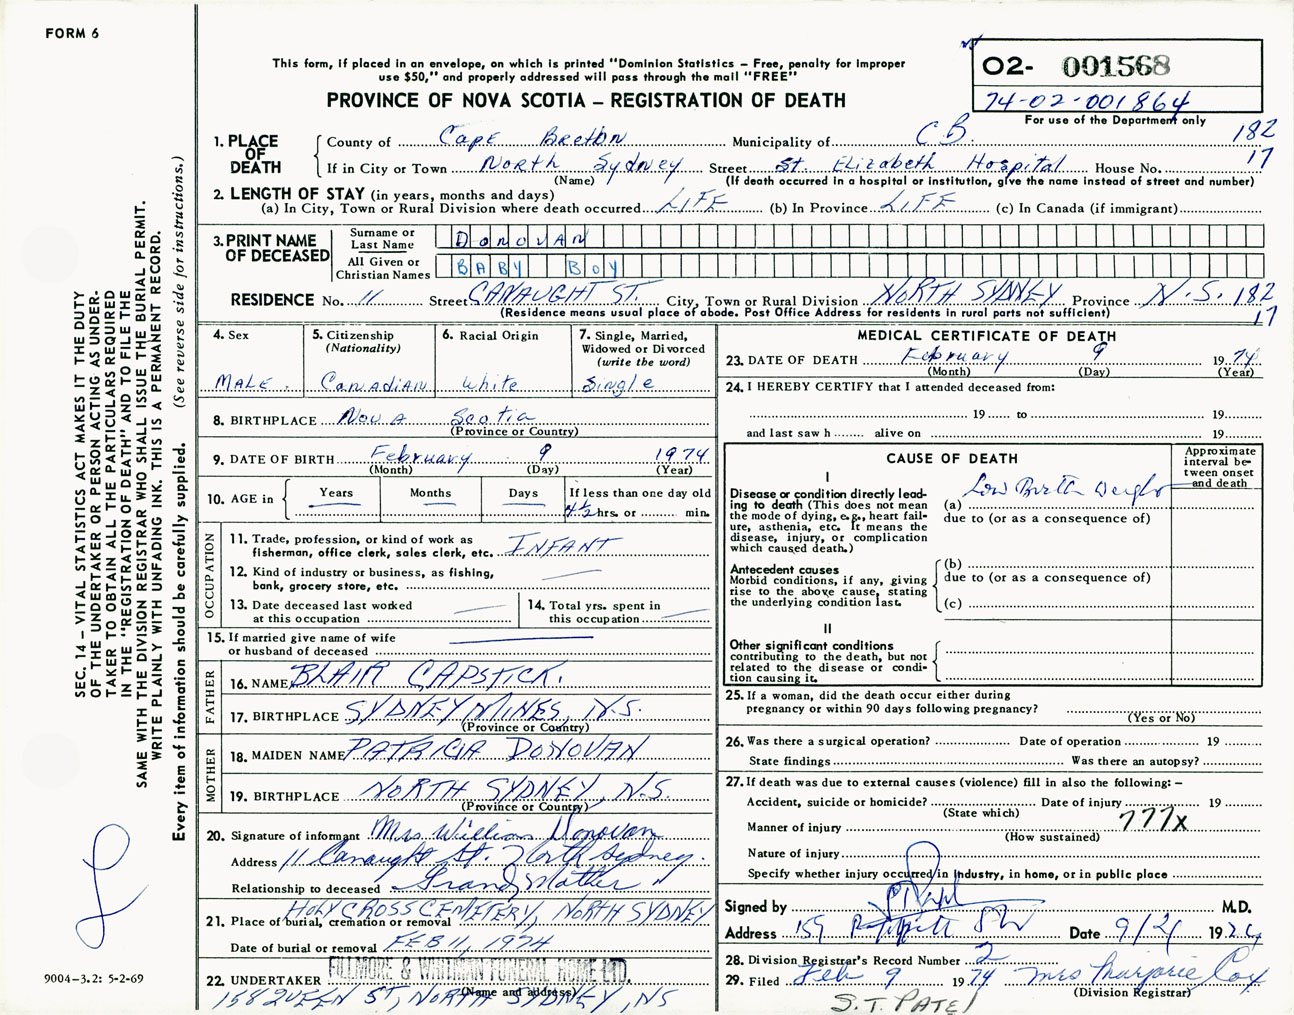 FORM 6
This form, if placed in an envelope, on which is printed "Dominion Statistics – Free, penalty for improper
use $50," and properly addressed will pass through the mail "FREE"
PROVINCE OF NOVA SCOTIA – REGISTRATION OF DEATH
O2- 001568
74-02-001864
For use of the Department only
182
17
1. PLACE OF DEATH
County of Cape Breton Municipality of C.B.
If in City or Town North Sydney Street St. Elizabeth Hospital House No.
(Name) (If death occurred in a hospital or institution, give the name instead of street and number)
2. LENGTH OF STAY (in years, months and days)
(a) In City, Town or Rural Division where death occurred LIFE (b) In Province LIFE (c) In Canada (if immigrant)
3. PRINT NAME OF DECEASED
Surname or Last Name DONOVAN
All Given or Christian Names BABY BOY
RESIDENCE No. 11 Street CANAUGHT ST. City, Town or Rural Division NORTH SYDNEY Province N.S. 182
17
(Residence means usual place of abode. Post Office Address for residents in rural parts not sufficient)
4. Sex
MALE.
5. Citizenship
(Nationality)
Canadian
6. Racial Origin
White
7. Single, Married,
Widowed or Divorced
(write the word)
Single
8. BIRTHPLACE Nova Scotia
(Province or Country)
9. DATE OF BIRTH February 9 1974
(Month) (Day) (Year)
10. AGE in Years Months Days If less than one day old
4½ hrs. or min.
OCCUPATION
11. Trade, profession, or kind of work as
fisherman, office clerk, sales clerk, etc. INFANT
12. Kind of industry or business, as fishing,
bank, grocery store, etc.
13. Date deceased last worked
at this occupation
14. Total yrs. spent in
this occupation
15. If married give name of wife
or husband of deceased
FATHER
16. NAME BLAIR CAPSTICK.
17. BIRTHPLACE SYDNEY MINES, N.S.
(Province or Country)
MOTHER
18. MAIDEN NAME PATRICIA DONOVAN
19. BIRTHPLACE NORTH SYDNEY, N.S.
(Province or Country)
20. Signature of informant Mrs William Donovan
Address 11 Canaught St. North Sydney.
Relationship to deceased Grand Mother "
21. Place of burial, cremation or removal HOLY CROSS CEMETERY, NORTH SYDNEY
Date of burial or removal FEB 11, 1974
22. UNDERTAKER FILLMORE & WHITMAN FUNERAL HOME LTD.
(Name and address)
158 QUEEN ST, NORTH SYDNEY, NS
MEDICAL CERTIFICATE OF DEATH
23. DATE OF DEATH February 9 1974
(Month) (Day) (Year)
24. I HEREBY CERTIFY that I attended deceased from:
19 to 19
and last saw h alive on 19
CAUSE OF DEATH
Approximate
interval be-
tween onset
and death
I
Disease or condition directly lead-
ing to death (This does not mean
the mode of dying, e.g., heart fail-
ure, asthenia, etc. It means the
disease, injury, or complication
which caused death.)
(a) Low Birth Weight
due to (or as a consequence of)
Antecedent causes
Morbid conditions, if any, giving
rise to the above cause, stating
the underlying condition last.
(b)
due to (or as a consequence of)
(c)
II
Other significant conditions
contributing to the death, but not
related to the disease or condi-
tion causing it.
25. If a woman, did the death occur either during
pregnancy or within 90 days following pregnancy?
(Yes or No)
26. Was there a surgical operation? Date of operation 19
State findings Was there an autopsy?
27. If death was due to external causes (violence) fill in also the following: –
Accident, suicide or homicide? Date of injury 19
(State which)
Manner of injury 777x
(How sustained)
Nature of injury
Specify whether injury occurred in industry, in home, or in public place
Signed by M.D.
Address 159 Date 9/2/ 1974
28. Division Registrar's Record Number 2
29. Filed Feb 9 1974 Mrs Marjorie Cox
(Division Registrar)
S.T. PATEL
SEC. 14 – VITAL STATISTICS ACT MAKES IT THE DUTY
OF THE UNDERTAKER OR PERSON ACTING AS UNDER-
TAKER TO OBTAIN ALL THE PARTICULARS REQUIRED
IN THE "REGISTRATION OF DEATH" AND TO FILE THE
SAME WITH THE DIVISION REGISTRAR WHO SHALL ISSUE THE BURIAL PERMIT.
WRITE PLAINLY WITH UNFADING INK. THIS IS A PERMANENT RECORD.
Every item of information should be carefully supplied. (See reverse side for instructions.)
9004-3.2: 5-2-69